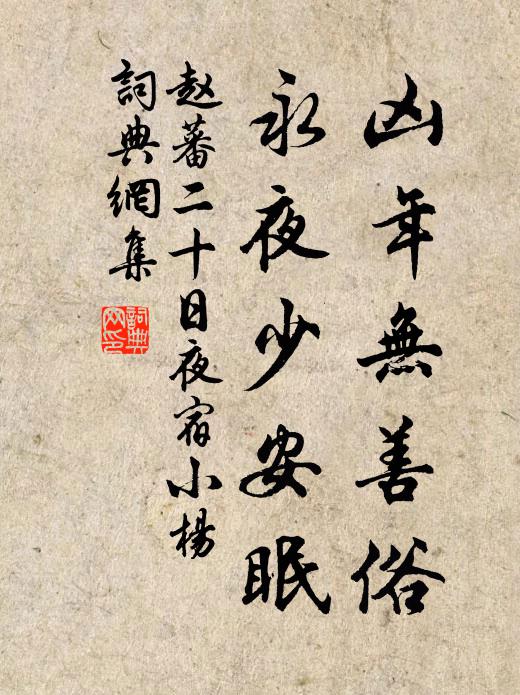 凶年無善俗
永夜少安眠
赵蕃二十日夜宿小楊
詞典網集
詞典网印